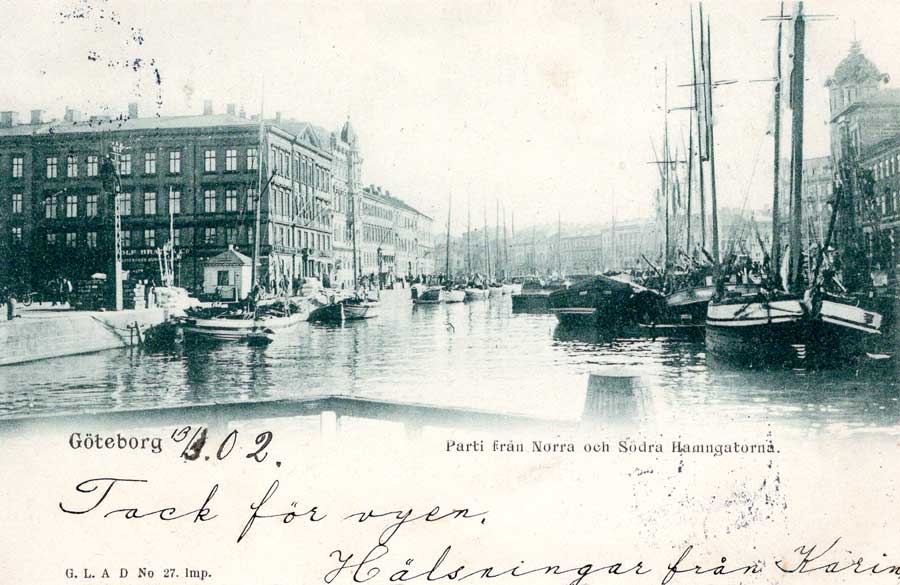 Göteborg 13/1.02.
Parti från Norra och Södra Hamngatorna.
Tack för vyen.
Hälsningar från Karin
G. L. A D No 27. Imp.